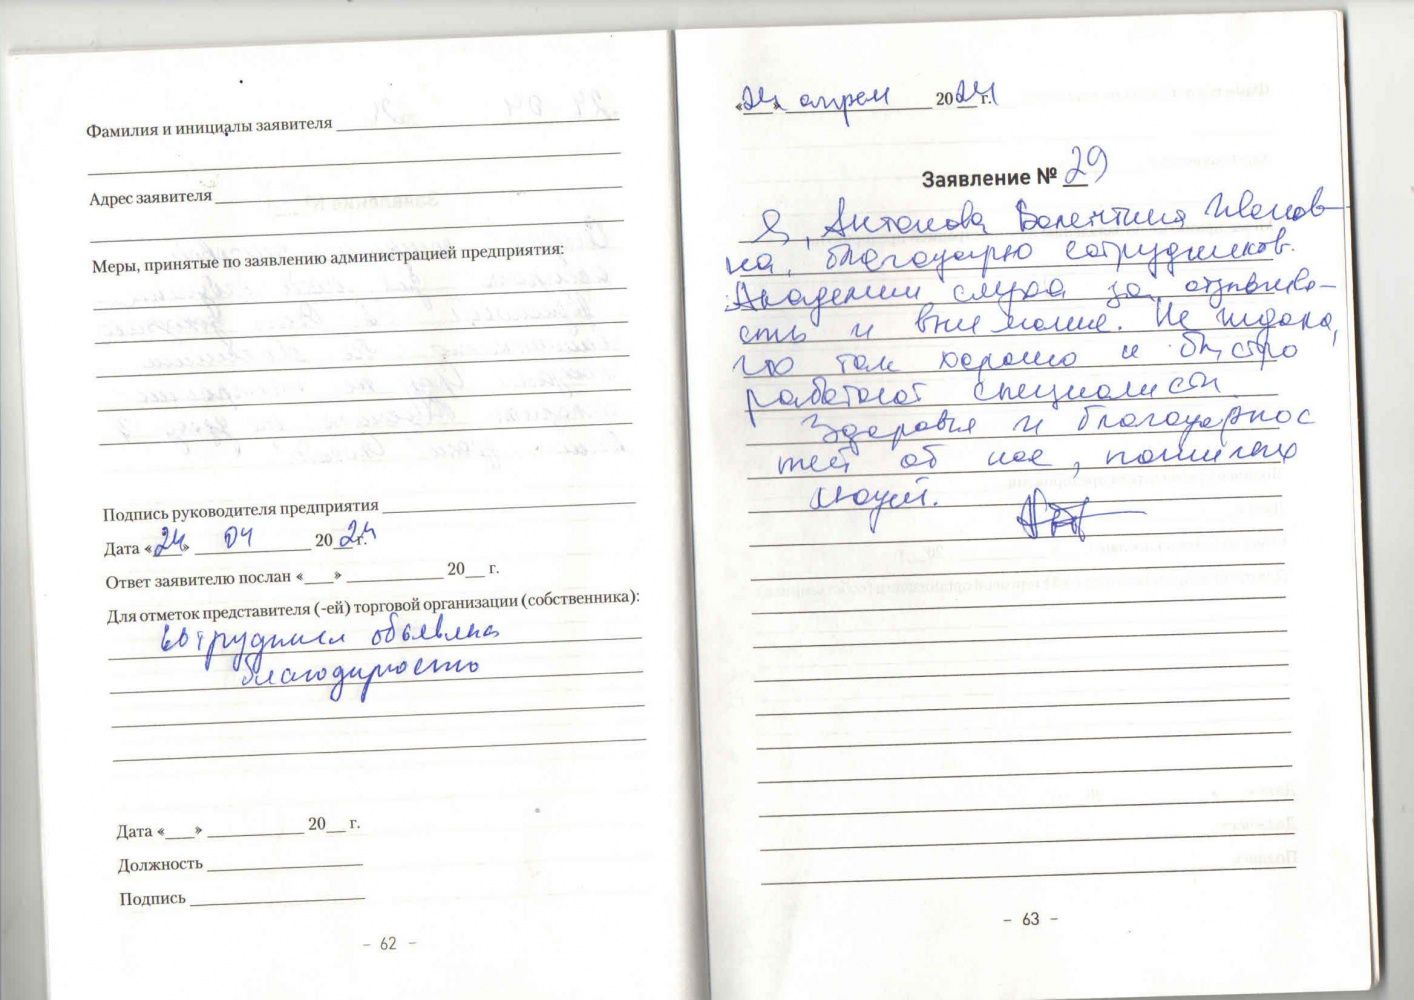 Фамилия и инициалы заявителя
Адрес заявителя
Меры, принятые по заявлению администрацией предприятия:
Подпись руководителя предприятия
Дата «24» 04 2024 г.
Ответ заявителю послан «___» ___ 20__ г.
Для отметок представителя (-ей) торговой организации (собственника):
сотрудникам объявлена
благодарность
Дата «___» ___ 20__ г.
Должность
Подпись
– 62 –
«24» апреля 2024 г.
Заявление № 29
Я, Антонова Валентина Иванов-
на, благодарю сотрудников
Академии слуха за отзывчиво-
сть и внимание. Не ждала,
что так хорошо и быстро
работают специалисты.
Здоровья и благодарнос
тей от нас, пожилых
людей.
– 63 –